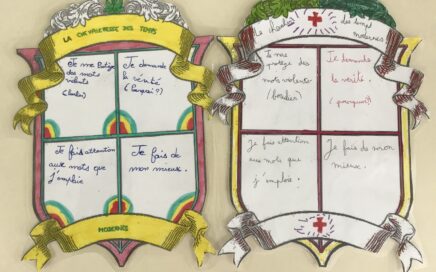 LA CHEVALERESSE DES TEMPS
Je me protège
des mots
violents
Je demande
la vérité
(pourquoi ?)
Je fais attention
aux mots que
j'emploie
Je fais de
mon mieux.
MODERNES
des temps
modernes
Je me
protège des
mots violents
(bouclier)
Je demande
la vérité.
(pourquoi ?)
Je fais attention
aux mots que
j'emploie.
Je fais de mon
mieux.